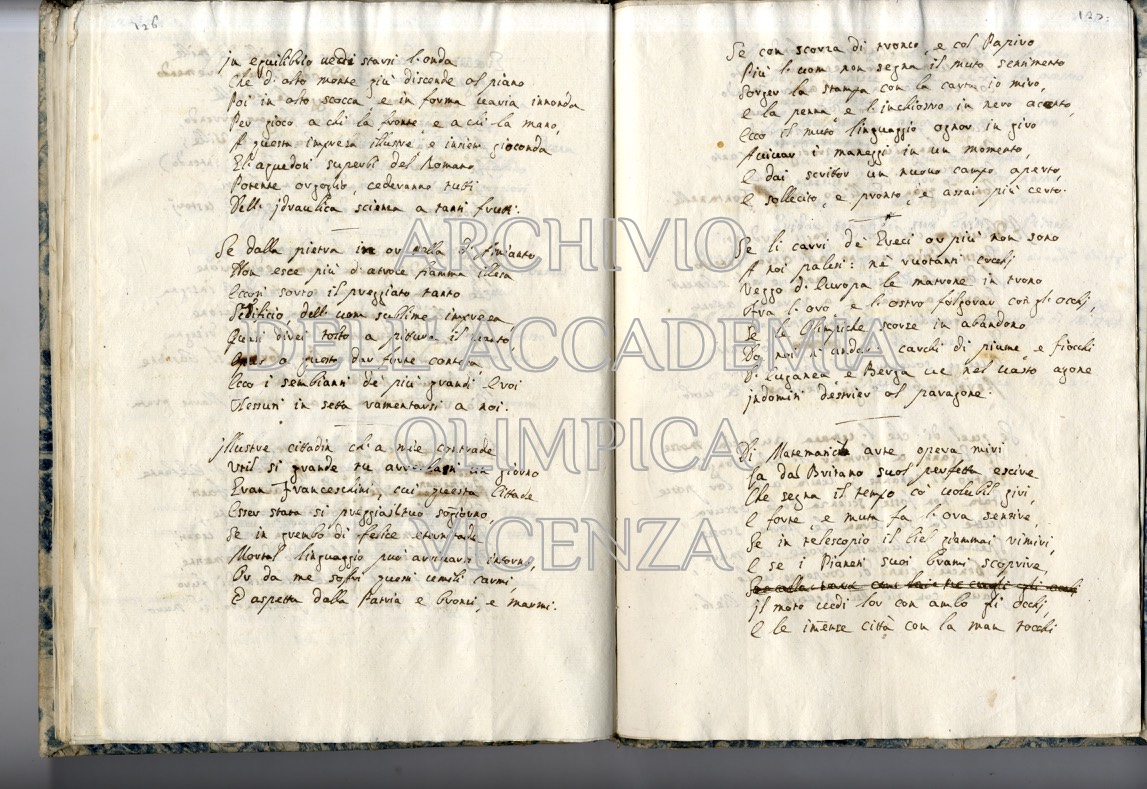 126
in equilibrio vedi starsi l'onda
Che d'alto monte giù discende al piano
Poi in alto scocca e in forma varia innonda
Per gioco a chi la fronte, e a cui la mano,
A questa impresa illustre e insiem gioconda
El' aquedoti superbi del Romano
Potente orgoglio, cederanno tutti
Dell' jdraulica scienza a tanti frutti.
Se dalla pietra in
Non esce più d'atroce fiamma illesa
Eccoti sorto il preggiato tanto
Sedificio dell' uom sublime impresa,
Quindi direi tosto a pittura il vanto,
a questo dar forte contesa
Ecco i sembianti de più grandi Eroi
Tessuti in setta ramentarsi a noi.
illustre cittadin ch'a mile contrade
Util si grande tu giorno
Evan Franceschini, cui questa Cittade
Esser stata si preggia il tuo sogiorno,
Se in grembo di felice eternitade
Mortal linguaggio può arrivarti intorno,
Or da me soffri questi umili carmi,
E aspetta dalla Patria e bronzi, e marmi.
127
Se con scorza di tronco, e col Papiro
Più l'uom non segna il muto sentimento
Sorger la stampa con la carta io miro,
e la penna, e l'inchiostro in nero
Ecco il muto linguaggio ognor in giro
i maneggi in un momento,
e dai scritor un nuovo campo aperto,
e sollecito, e pronto, e assai più certo.
Se li carri de Greci or più non sono
A noi palesi: nè ruotanti cocchj
Veggo d'Europa le matrone in trono
tra l'oro, e l'ostro folgorar con gl'occhj,
Se le Olimpiche scorse in abandono
Da noi n' carchi di piume, e fiocchi
Di Luganea, e Berga nel vasto agone
jndomiti destrier al paragone.
Di Matematich' arte opera miri
Già dal Britano suol perfetta escire
Che segna il tempo co' volubil giri,
e forte, e muta fa l'ora sentire,
Se in telescopio il Ciel giammai rimiri,
e se i Pianeti suoi brami scoprire,
il moto vedi lor con ambo gli occhj,
E le imense città con la man tocchi
ARCHIVIO
DELL'ACCADEMIA
OLIMPICA
VICENZA